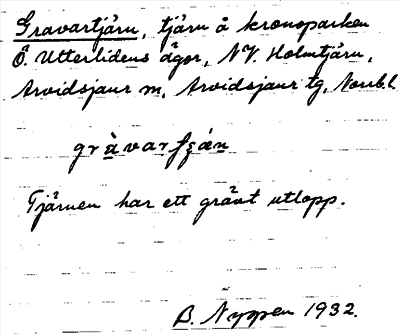 Gravartjärn, tjärn å kronoparken
Ö. Utterlidens ägor, NV. Holmtjärn,
Arvidsjaur m, Arvidsjaur tg, Norrb.l.
gràvarʃȩán
Tjärnen har ett grävt utlopp.
B. Nyppen 1932.